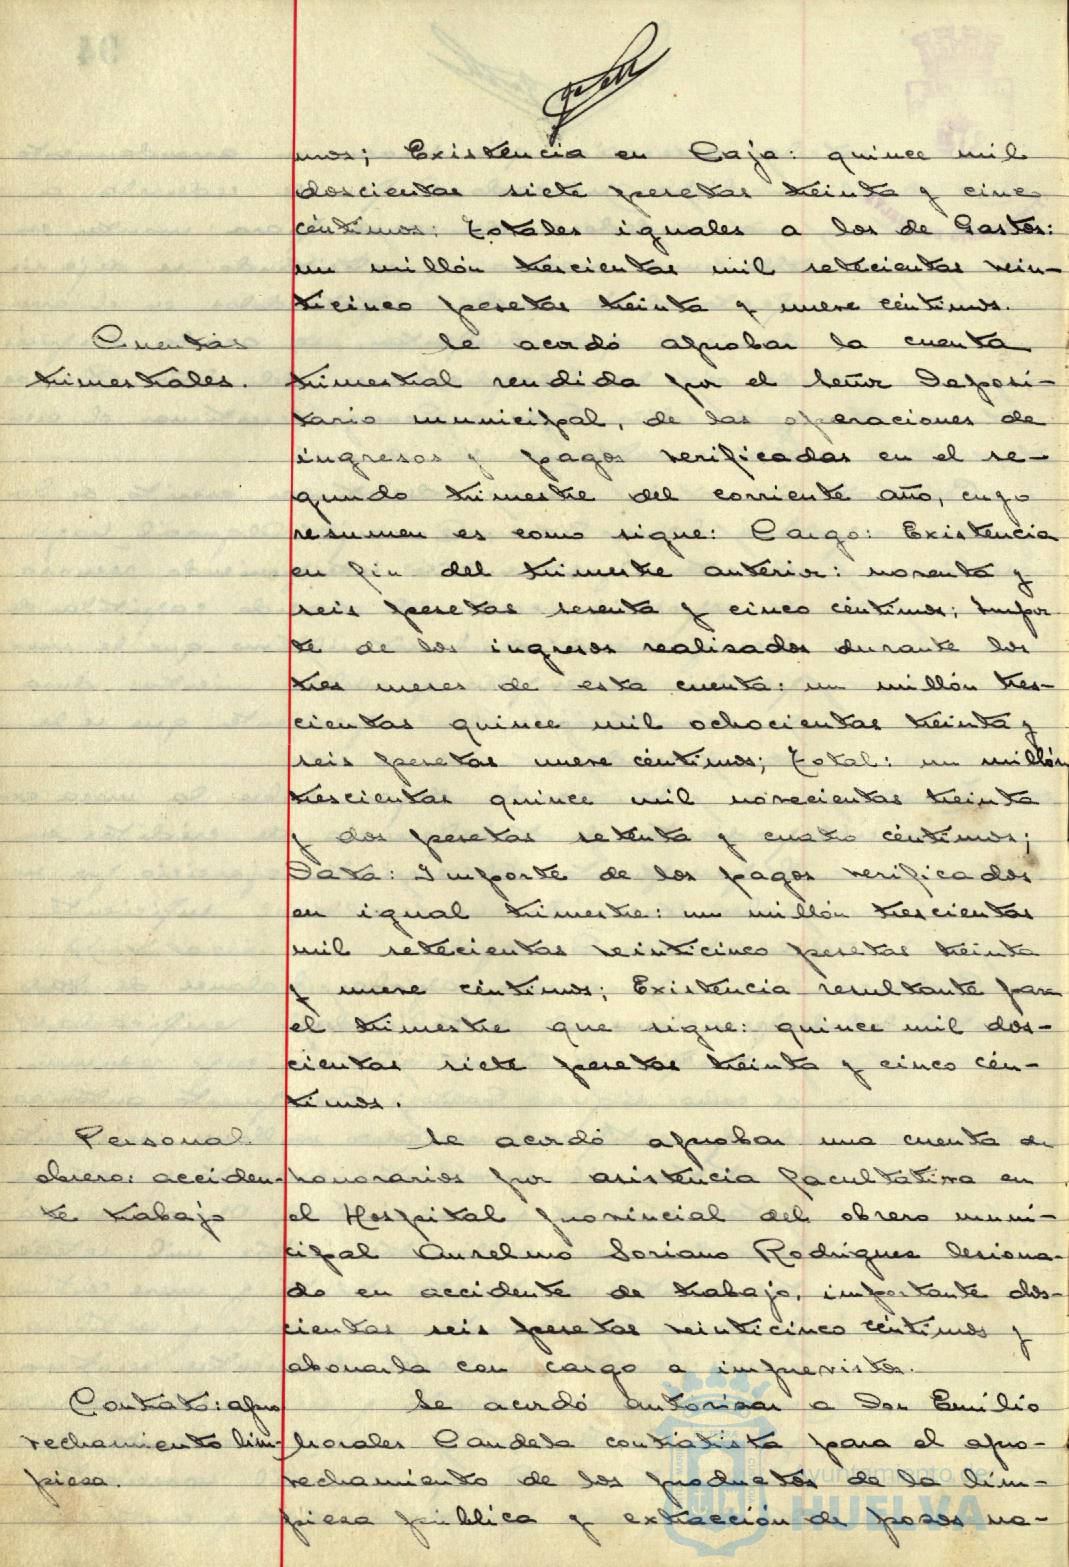 mos; Existencia en Caja: quince mil
doscientas siete pesetas treinta y cinco
céntimos; Totales iguales a los de Gastos:
un millón trescientas mil setecientas vein-
ticinco pesetas treinta y nueve céntimos.
Cuentas
trimestrales.
Se acordó aprobar la cuenta
trimestral rendida por el Señor Deposi-
tario municipal, de las operaciones de
ingresos y pagos verificadas en el se-
gundo trimestre del corriente año, cuyo
resumen es como sigue: Cargo: Existencia
en fin del trimestre anterior: noventa y
seis pesetas sesenta y cinco céntimos; Impor
te de los ingresos realizados durante los
tres meses de esta cuenta: un millón tres-
cientas quince mil ochocientas treinta y
seis pesetas nueve céntimos; Total: un millón
trescientas quince mil novecientas treinta
y dos pesetas setenta y cuatro céntimos;
Data: Importe de los pagos verificados
en igual trimestre: un millón trescientas
mil setecientas veinticinco pesetas treinta
y nueve céntimos; Existencia resultante para
el trimestre que sigue: quince mil dos-
cientas siete pesetas treinta y cinco cén-
timos.
Personal
obrero: acciden-
te trabajo
Se acordó aprobar una cuenta de
honorarios por asistencia facultativa en
el Hospital provincial del obrero muni-
cipal Anselmo Soriano Rodriguez lesiona-
do en accidente de trabajo, importante dos-
cientas seis pesetas veinticinco céntimos y
abonarla con cargo a imprevistos.
Contrato: apro
vechamiento lim-
pieza.
Se acordó autorizar a Don Emilio
Morales Candela contratista para el apro-
vechamiento de los productos de la lim-
pieza pública y extracción de pozos ne-
ayuntamiento de
HUELVA